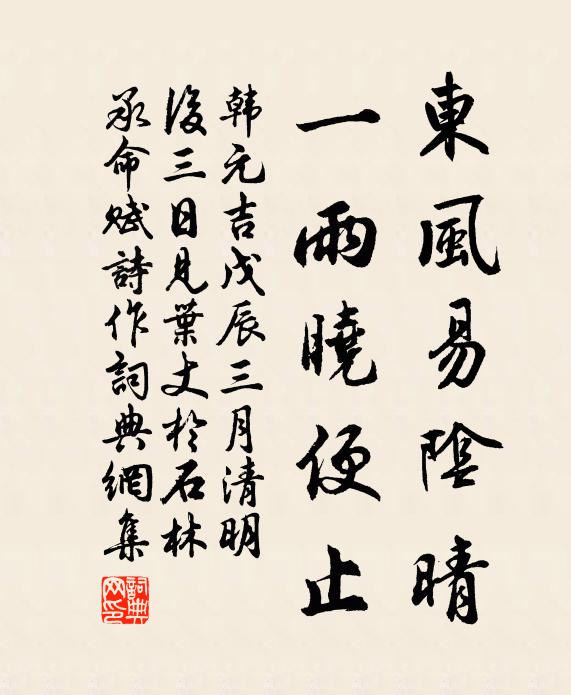 東風易陰晴
一雨曉便止
韩元吉戊辰三月清明
後三日見葉丈於石林
承命賦詩作詞典網集
詞典
网印